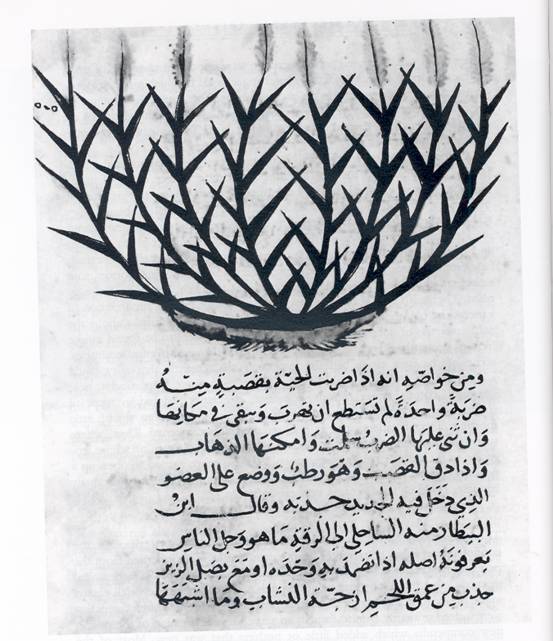 ومن خواصه انه اذا ضربت الحية بقصبة منه
ضربة واحدة لم تستطع ان تهرب وتبقى في مكانها
وان ثنى عليها الضرب سلمت وامكنها الذهاب
واذا دق القصب وهو رطب ووضع على العضو
الذي دخل فيه الحديد جذبه وقال ابن
البيطار منه الساحلي الى الرقة ما هو وجل الناس
يعرفونه اصله اذا تضمد به وحده او مع بصل الزيز
جذب من عمق اللحم ازجة النشاب وما اشبهها